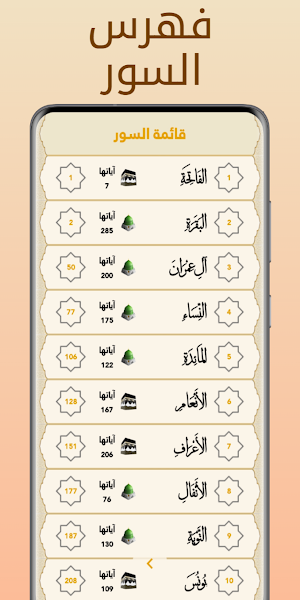 فهرس
السور
قائمة السور
1 الفَاتِحَة آياتها 7 1
2 البَقَرَة آياتها 285 2
3 آل عِمْرَان آياتها 200 50
4 النِّسَاء آياتها 175 77
5 المَائدَة آياتها 122 106
6 الأَنْعَام آياتها 167 128
7 الأَعْرَاف آياتها 206 151
8 الأَنْفَال آياتها 76 177
9 التَّوْبَة آياتها 130 187
10 يُونُس آياتها 109 208